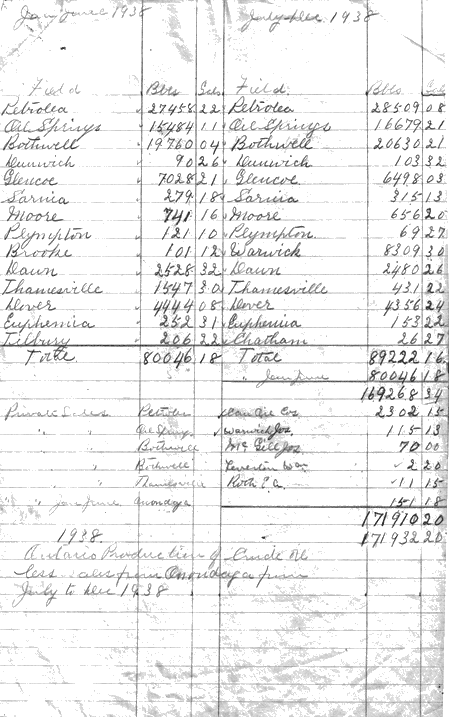 Jan June 1938 July Dec 1938
Field Bbls Gals Field Bbls Gals
Petrolea 27458 22 Petrolea 28509 08
Oil Springs 15484 11 Oil Springs 16679 21
Bothwell 19760 04 Bothwell 20630 21
Dunwich 90 26 Dunwich 103 32
Glencoe 7028 21 Glencoe 6498 03
Sarnia 279 18 Sarnia 315 13
Moore 741 16 Moore 656 20
Plympton 121 10 Plympton 69 27
Brooke 101 12 Warwick 8309 30
Dawn 2528 32 Dawn 2480 26
Thamesville 1547 30 Thamesville 431 22
Dover 4444 08 Dover 4356 24
Euphemia 252 31 Euphemia 153 22
Tilbury 206 22 Chatham 26 27
Total 80046 18 Total 89222 16
" Jan June 80046 18
169268 34
Private Sales Petrolea Can Oil Cos 2302 15
" " Oil Springs Warwick Jos 115 13
" " Bothwell McGill Jos 70 00
" " Bothwell Leverton Wm 22 20
" " Thamesville Roth 11 15
" " Jan June Onondaga 151 18
171910 20
1938. 171932 20
Ontario Production of Crude Oil
less sales from Onondaga from
July to Dec 1938